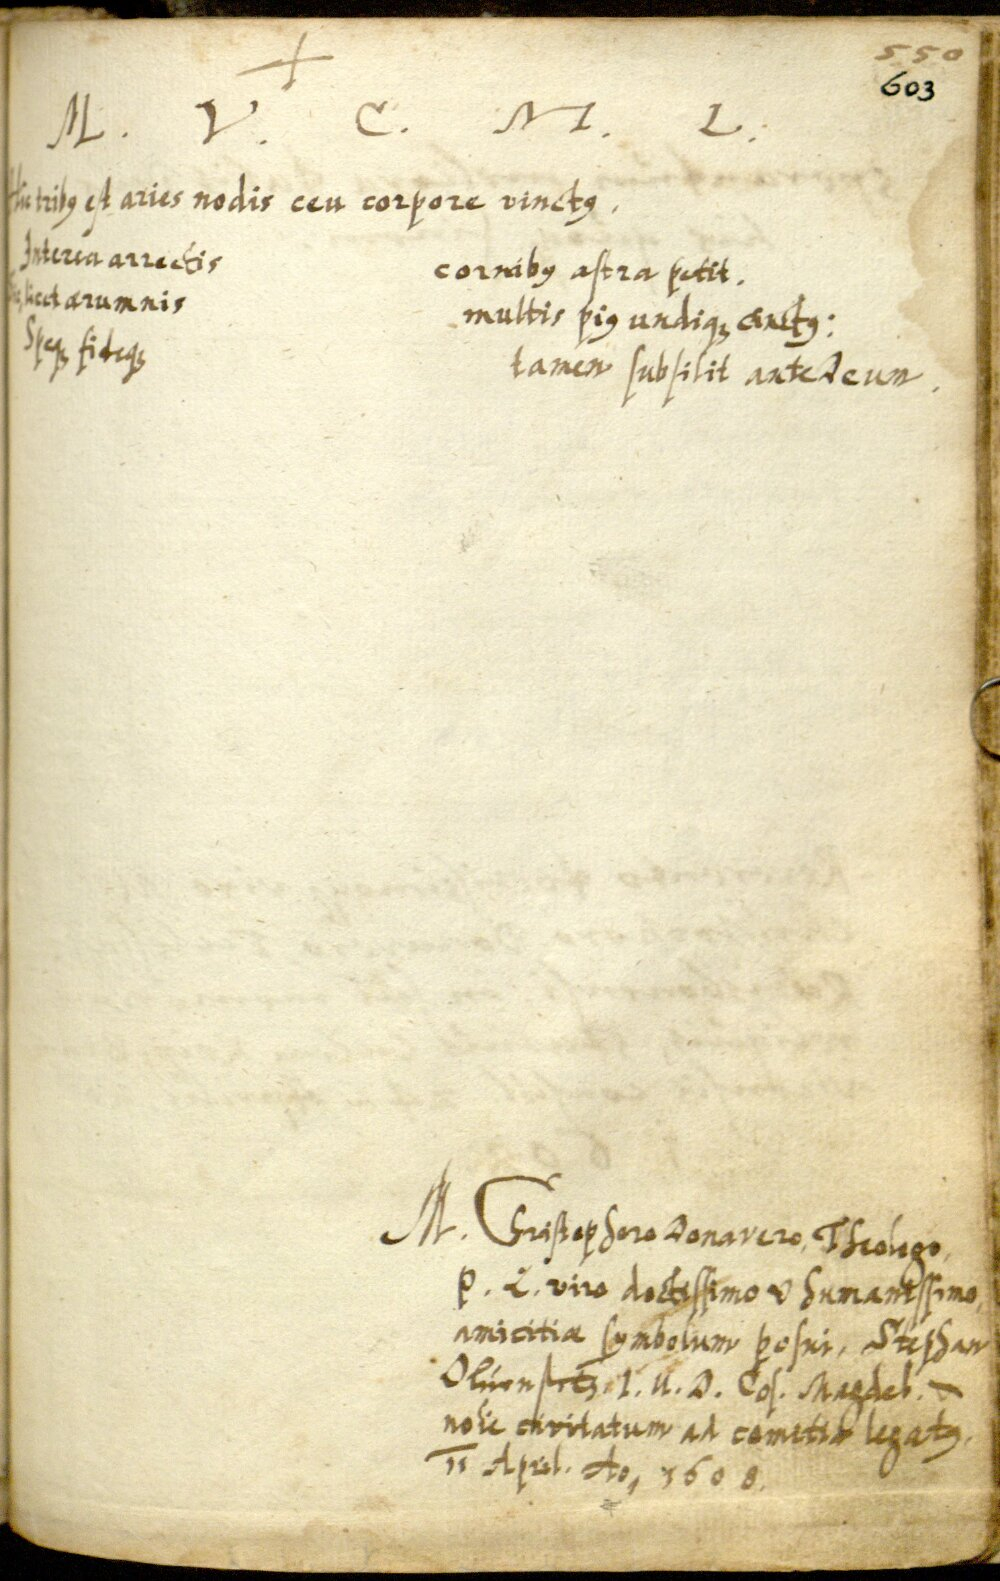 550
603
M. V. C. M. L.
Hic tribꝰ est aries nodis ceu corpore vinctꝰ.
Interea arrectis cornibꝰ astra petit.
Sic, licet ærumnis multis piꝰ undiqꝫ cinctꝰ:
Speqꝫ fideqꝫ tamen subsilit ante Deum.
M. Christophoro Donavero, Theologo,
P. L. viro doctissimo & humanissimo,
amicitiæ symbolum posui, Stephan
I. U. D. Cos. Magdeb. &
noie civitatum ad comitia legatꝰ.
11 April. Ao, 1608.